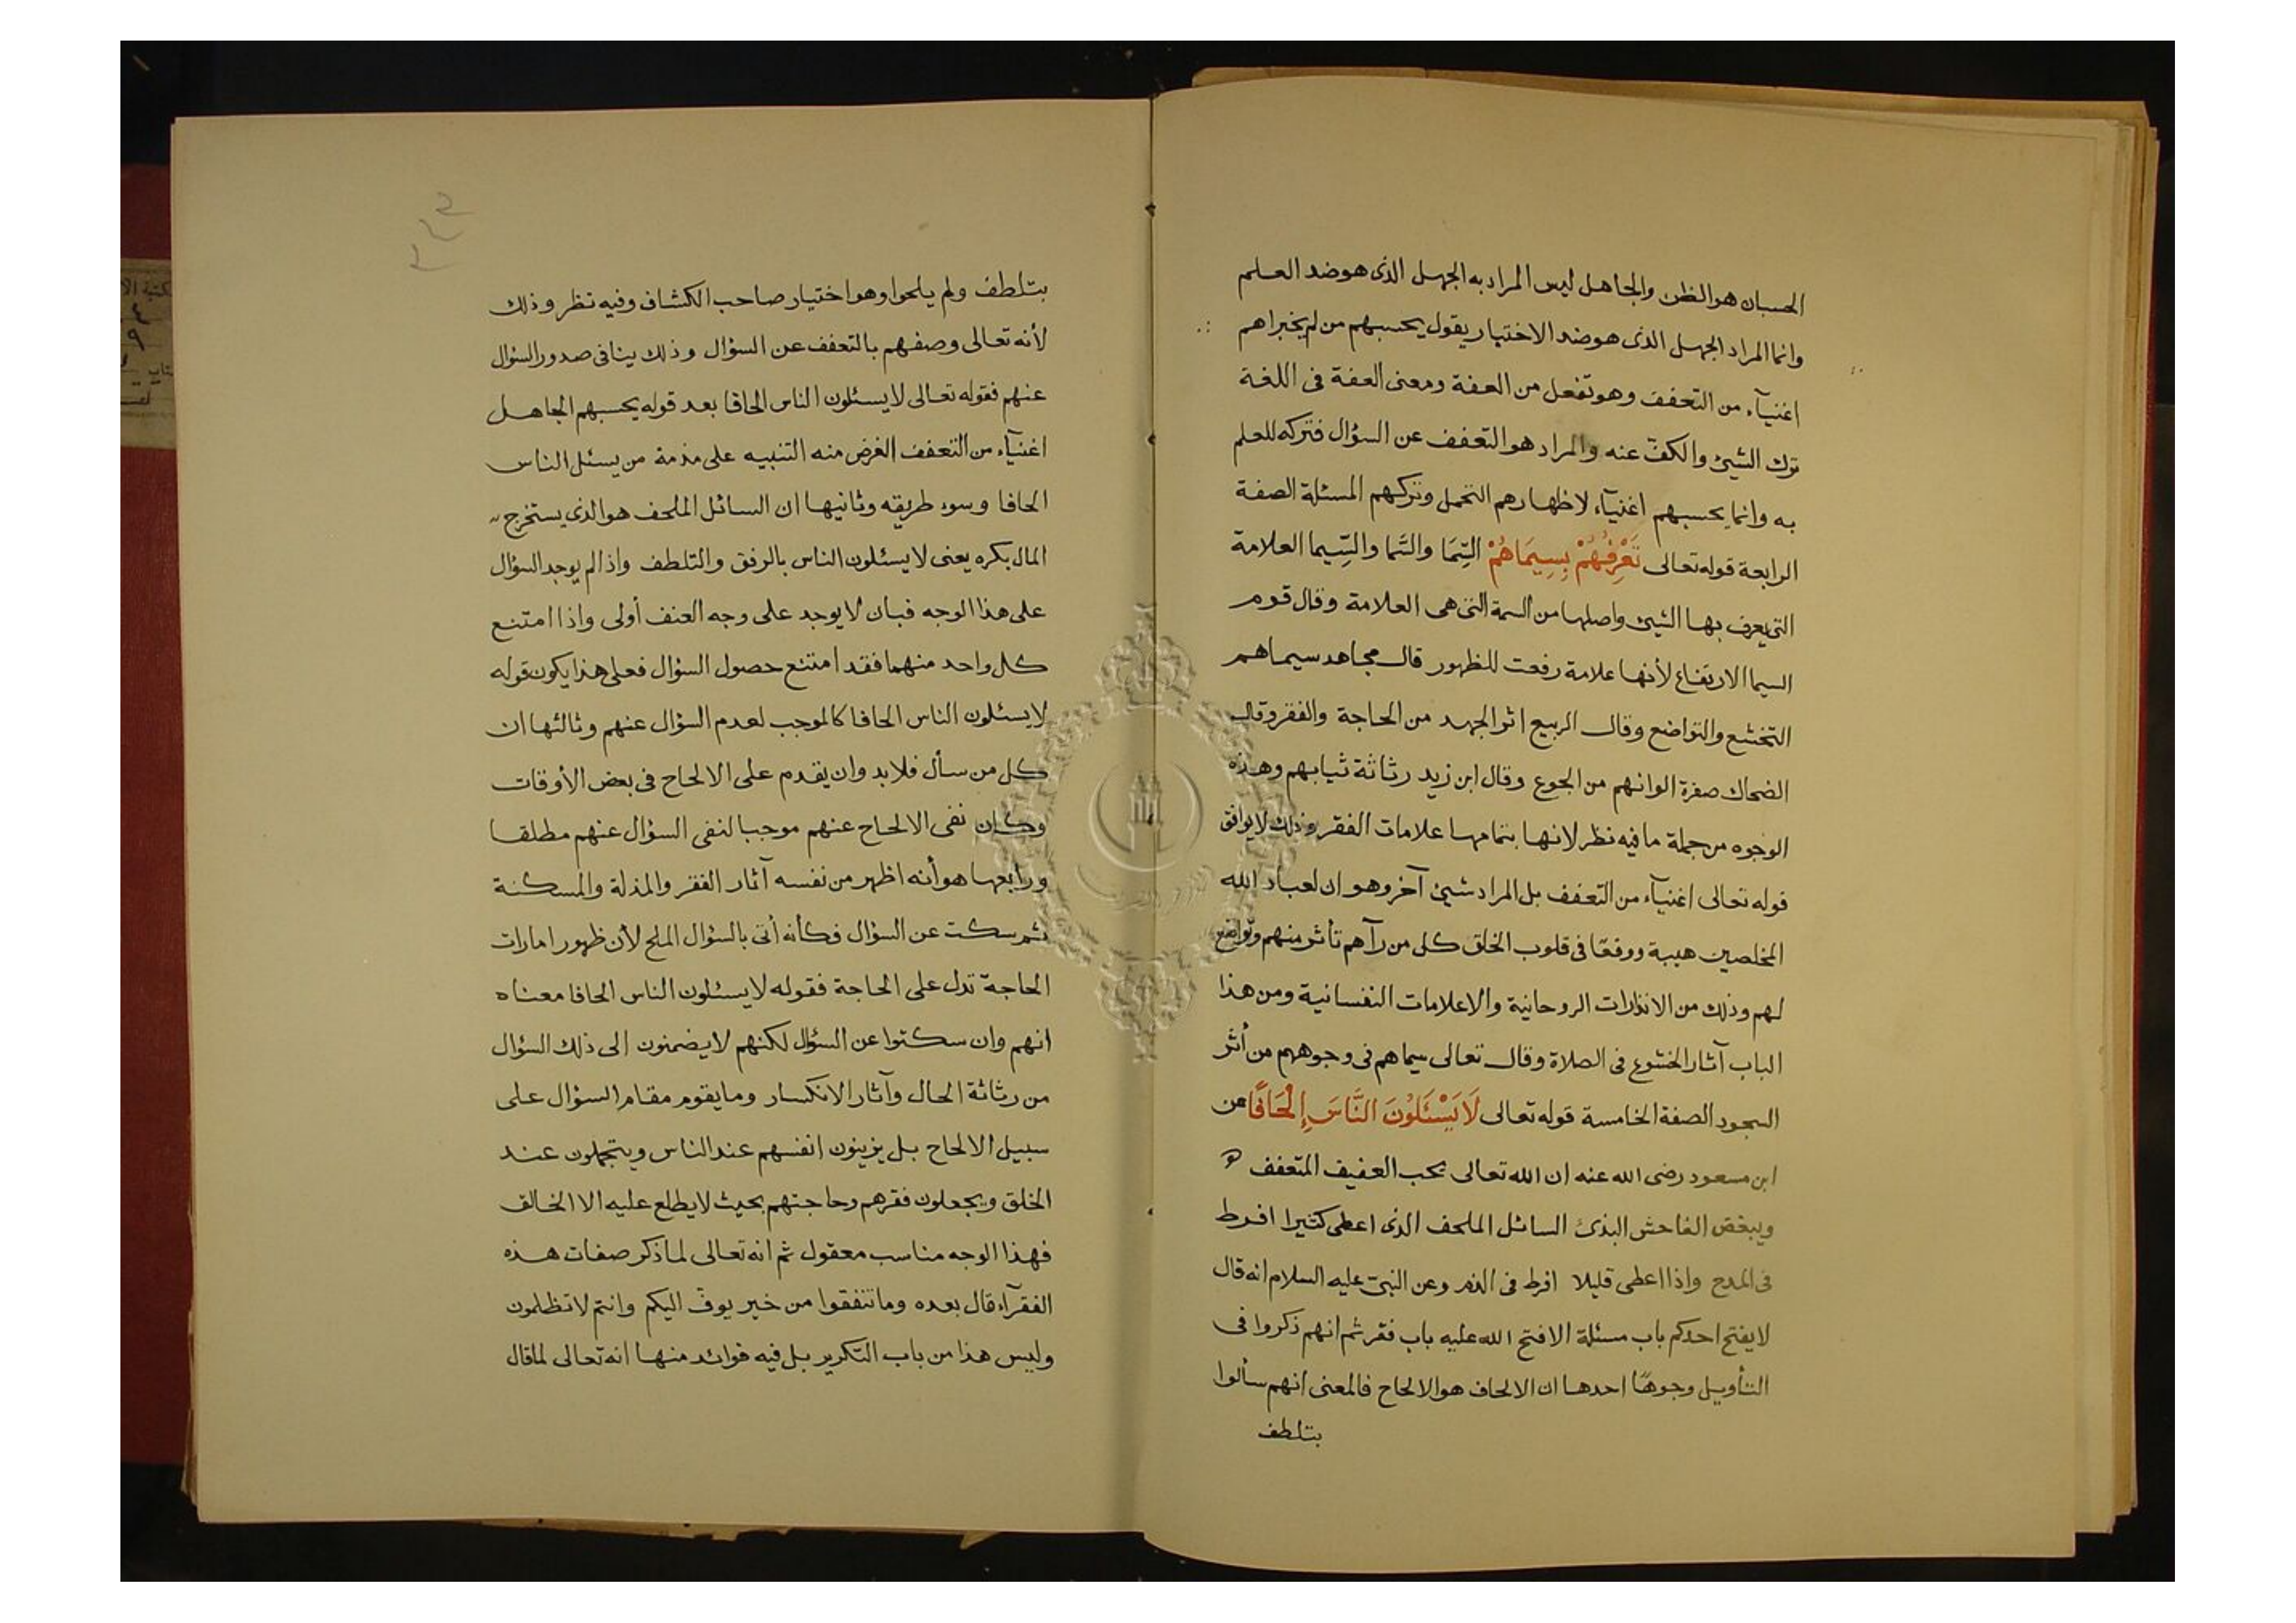 الحسبان هو الظن والجاهل ليس المراد به الجهل الذى هو ضد العلم
وانما المراد الجهل الذى هو ضد الاختيار يقول يحسبهم من لم يخبراهم
اغنيآء من التعفف وهو تفعل من العفة ومعنى العفة فى اللغة
ترك الشيئ والكفّ عنه والمراد هو التعفف عن السؤال فتركه للعلم
به وانما يحسبهم اغنيآء لاظهارهم التحمل وتركهم المسئلة الصفة
الرابعة قوله تعالى تَعْرِفُهُمْ بِسِيمَاهُمْ السِّيمَا والسّما والسِّيما العلامة
التى يعرف بها الشيئ واصلها من السمة التى هى العلامة وقال قوم
السيما الارتفاع لأنها علامة رفعت للظهور قال مجاهد سيماهم
التخشع والتواضع وقال الربيع اثر الجهد من الحاجة والفقر وقال
الضحاك صفرة الوانهم من الجوع وقال ابن زيد رثاثة ثيابهم وهذه
الوجوه من جملة ما فيه نظر لانها بتمامها علامات الفقر وذلك لا يوافق
قوله تعالى اغنيآء من التعفف بل المراد شيئ آخر وهو ان لعباد الله
المخلصين هيبة ووقعًا فى قلوب الخلق كل من رآهم تأثر منهم وتواضع
لهم وذلك من الانذارات الروحانية والاعلامات النفسانية ومن هذا
الباب آثار الخشوع فى الصلاة وقال تعالى سيماهم فى وجوههم من أثر
السجود الصفة الخامسة قوله تعالى لَا يَسْئَلُونَ النَّاسَ إِلْحَافًا عن
ابن مسعود رضى الله عنه ان الله تعالى يحب العفيف المتعفف
ويبغض الفاحش البذئ السائل الملحف الذى اعطى كثيرا افرط
فى المدح واذا اعطى قليلا افرط فى الذم وعن النبىّ عليه السلام انه قال
لا يفتح احدكم باب مسئلة الا فتح الله عليه باب فقر ثم انهم ذكروا فى
التأويل وجوهًا احدها ان الالحاف هو الالحاح فالمعنى انهم سألوا
بتلطف
بتلطف ولم يلحوا وهو اختيار صاحب الكشاف وفيه نظر وذلك
لأنه تعالى وصفهم بالتعفف عن السؤال وذلك ينافى صدور السؤال
عنهم فقوله تعالى لا يسئلون الناس الحافا بعد قوله يحسبهم الجاهل
اغنيآء من التعفف الغرض منه التنبيه على مذمة من يسئل الناس
الحافا وسوء طريقه وثانيها ان السائل الملحف هو الذى يستخرج
المال بكره يعنى لا يسئلون الناس بالرفق والتلطف واذا لم يوجد السؤال
على هذا الوجه فبان لا يوجد على وجه العنف أولى واذا امتنع
كل واحد منهما فقد امتنع حصول السؤال فعلى هذا يكون قوله
لا يسئلون الناس الحافا كالموجب لعدم السؤال عنهم وثالثها ان
كل من سأل فلا بد وان يقدم على الالحاح فى بعض الأوقات
وكان نفى الالحاح عنهم موجبا لنفى السؤال عنهم مطلقا
ورابعها هو أنه اظهر من نفسه آثار الفقر والمذلة والمسكنة
ثم سكت عن السؤال فكأنه أتى بالسؤال الملح لأن ظهور امارات
الحاجة تدل على الحاجة فقوله لا يسئلون الناس الحافا معناه
انهم وان سكتوا عن السؤال لكنهم لا يضمنون الى ذلك السؤال
من رثاثة الحال وآثار الانكسار وما يقوم مقام السؤال على
سبيل الالحاح بل يزينون انفسهم عند الناس ويتجملون عند
الخلق ويجعلون فقرهم وحاجتهم بحيث لا يطلع عليه الا الخالق
فهذا الوجه مناسب معقول ثم انه تعالى لما ذكر صفات هذه
الفقرآء قال بعده وما تنفقوا من خير يوفّ اليكم وانتم لا تظلمون
وليس هذا من باب التكرير بل فيه فوائد منها انه تعالى لما قال